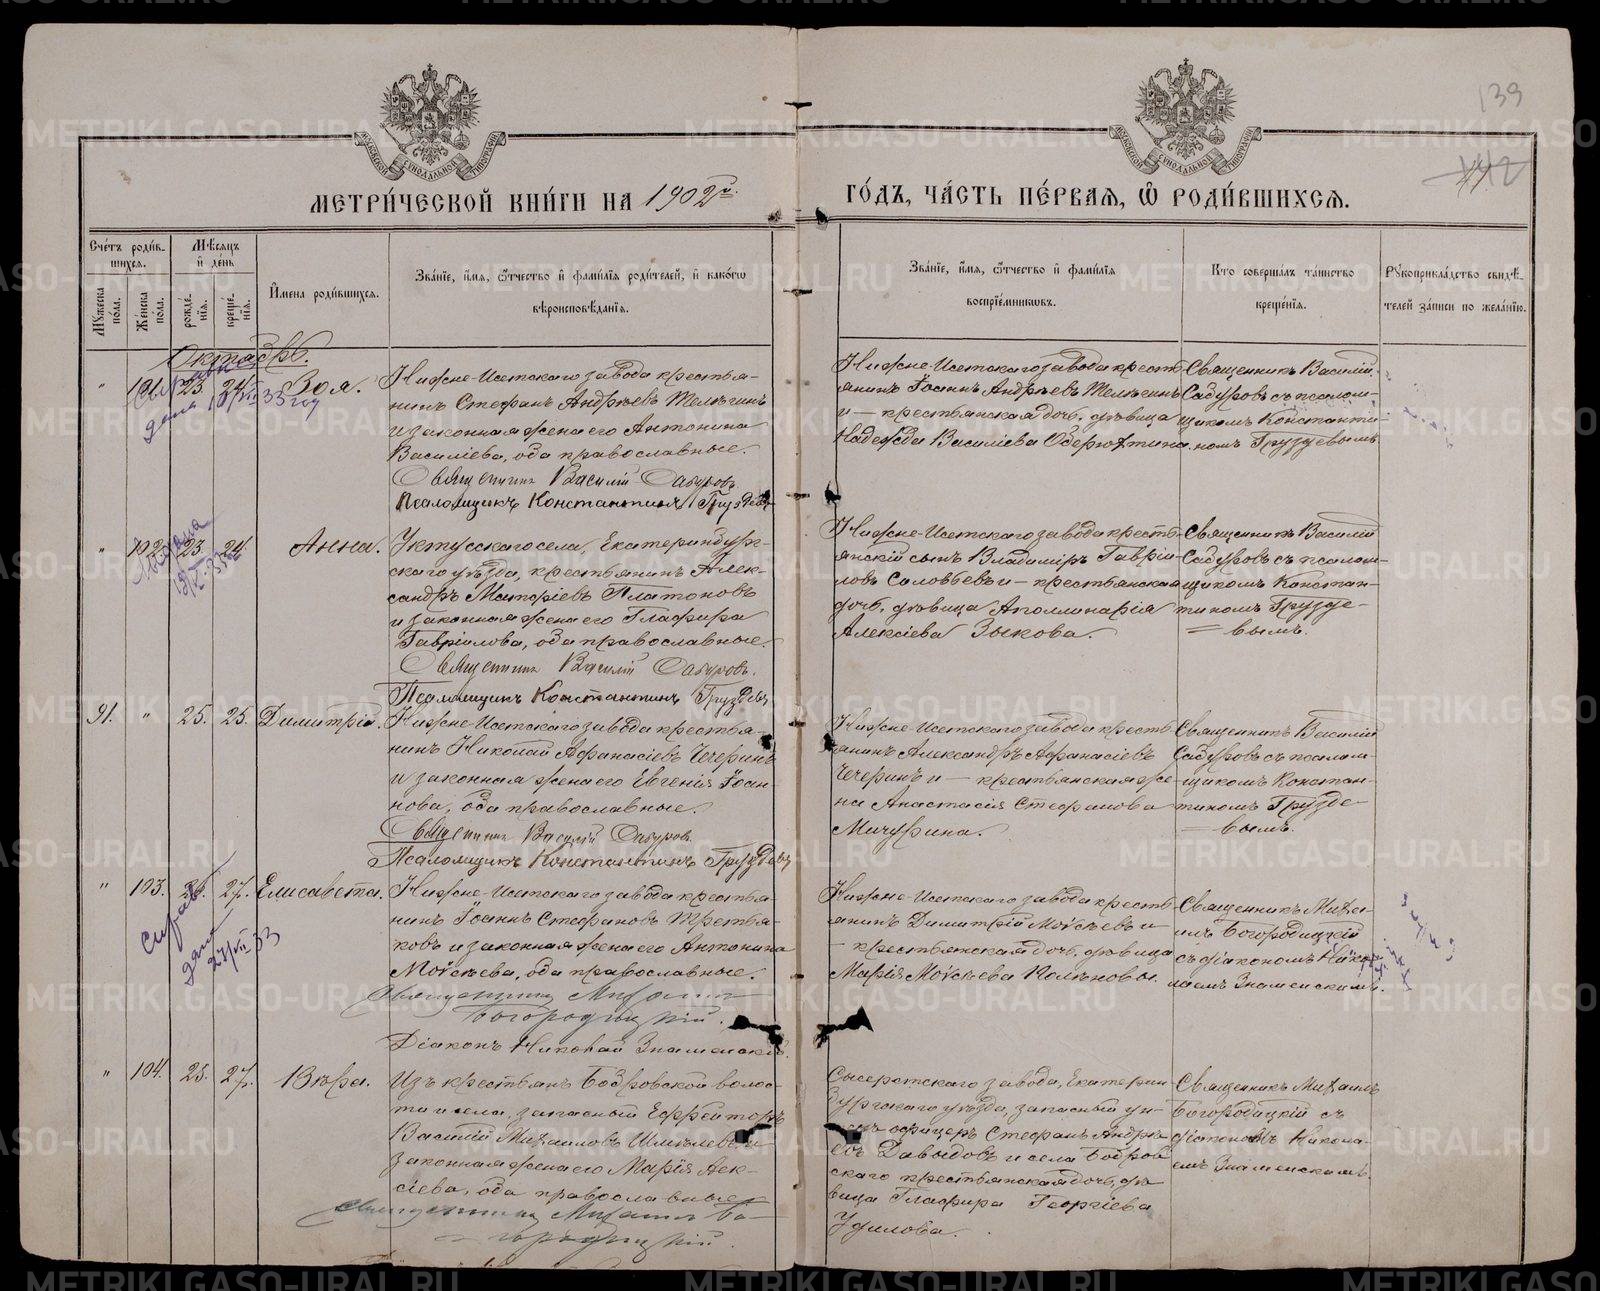 139
142
МЕТРИ́ЧЕСКОЙ КНИ́ГИ НА 1902й
ГО́ДЪ, ЧА́СТЬ ПЕ́РВАЯ, Ѡ РОДИ́ВШИХСЯ.
Сче́тъ роди́в-
шихся.
Мужеска по́ла.
Же́нска по́ла.
Мѣ́сяцъ
и де́нь
рожде́нїя.
креще́нїя.
И́мена роди́вшихся.
Зва́нїе, и́мя, ѻ҆́тчество и фами́лїя роди́телей, и како́гѡ
вѣроисповѣ́данїя.
Зва́нїе, и́мя, ѻ҆́тчество и фами́лїя
воспрїе́мниковъ.
Кто соверша́лъ та́инство
креще́нїя.
Рꙋкоприкла́дство свидѣ́-
телей за́писи по жела́нїю.
Октябрь.
" 101. 23. 24. Зоя.
Нижне-Исетскаго завода крестья-
нинъ Стефанъ Андреевъ Телѣгинъ
и законная жена его Антонина
Василіева, оба православные.
Священникъ Василій Сабуровъ
Псаломщикъ Константинъ Груздевъ
Нижне-Исетскаго завода кресть-
янинъ Іоаннъ Андреевъ Телѣгинъ
и — крестьянская дочь, дѣвица
Надежда Василіева
Священникъ Василій
Сабуровъ съ псалом-
щикомъ Константи-
номъ Груздевымъ
" 102. 23. 24. Анна.
Уктусскаго села, Екатеринбург-
скаго уѣзда, крестьянинъ Алек-
сандръ Матфіевъ Платоновъ
и законная жена его Глафира
Гавріилова, оба православные.
Священникъ Василій Сабуровъ.
Псаломщикъ Константинъ Груздевъ
Нижне-Исетскаго завода кресть-
янскій сынъ Владиміръ Гавріи-
ловъ Соловьевъ и — крестьянская
дочь, дѣвица Аполлинарія
Алексіева Зыкова.
Священникъ Василій
Сабуровъ съ псалом-
щикомъ Констан-
тиномъ Грузде-
вымъ.
91. " 25. 25. Димитрій.
Нижне-Исетскаго завода крестья-
нинъ Николай Афанасіевъ Чечеринъ
и законная жена его Евгенія Іоан-
нова, оба православные.
Священникъ Василій Сабуровъ
Псаломщикъ Константинъ Груздевъ
Нижне-Исетскаго завода кресть-
янинъ Александръ Афанасіевъ
Чечеринъ и — крестьянская же-
на Анастасія Стефанова
Мичурина.
Священникъ Василій
Сабуровъ съ псалом-
щикомъ Констан-
тиномъ Грузде-
вымъ.
" 103. 26. 27. Елисавета.
Нижне-Исетскаго завода крестья-
нинъ Іоаннъ Стефановъ Третья-
ковъ и законная жена его Антонина
Моисеева, оба православные.
Священникъ Михаилъ
Богородицкій.
Діаконъ Николай Знаменскій.
Нижне-Исетскаго завода кресть-
янинъ Димитрій Моисеевъ и
— крестьянская дочь, дѣвица
Марія Моисеева
Священникъ Миха-
илъ Богородицкій
съ діакономъ Нико-
лаемъ Знаменскимъ.
справ дана 23/VII 33
" 104. 25. 27. Вѣра.
Изъ крестьянъ Бобровской волос-
ти и села, запасный Ефрейторъ
Василій Михаиловъ Шмелевъ и
законная жена его Марія Алек-
сіева, оба православные.
Священникъ Михаилъ Бо-
городицкій.
Сысертскаго завода, Екатерин-
бургскаго уѣзда, запасный ун-
теръ-офицеръ Стефанъ Андре-
евъ Давыдовъ и села Бобров-
скаго крестьянская дочь, дѣ-
вица Глафира Георгіева
Удилова.
Священникъ Михаилъ
Богородицкій съ
діакономъ Никола-
емъ Знаменскимъ.
METRIKI.GASO-URAL.RU